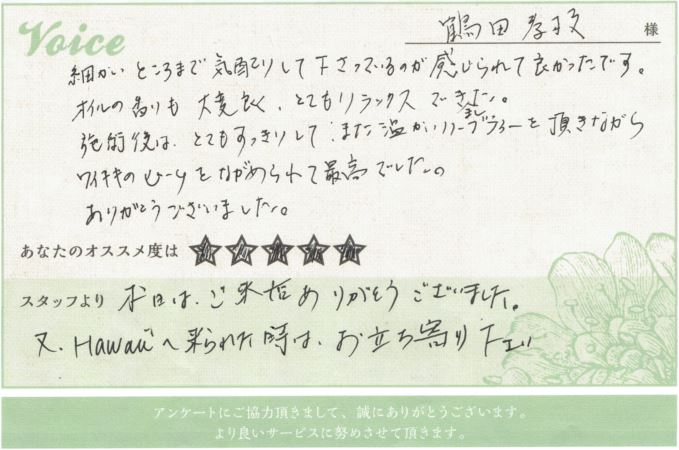 Voice
鶴田孝枝 様
細かいところまで気配りして下さっているのが感じられて良かったです。
オイルの香りも大変良く、とてもリラックスできました。
施術後は、とてもすっきりして、また温かいハーブティーを頂きながら
ワイキキのビーチをながめられて最高でした。
ありがとうございました。
あなたのオススメ度は ★★★★★
スタッフより 本日は、ご来店ありがとうございました。
又、Hawaiiへ来られた時は、お立ち寄り下さい
アンケートにご協力頂きまして、誠にありがとうございます。
より良いサービスに努めさせて頂きます。